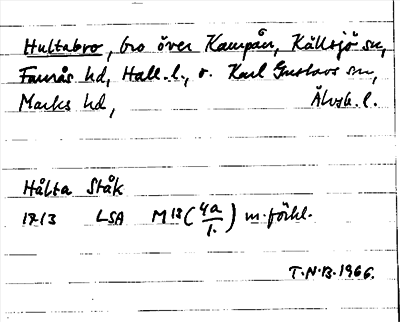 Hultabro, bro över Kampån, Källsjö sn,
Faurås hd, Hall. l., o. Karl Gustavs sn,
Marks hd, Älvsb. l.
Hålta Ståk
1713 LSA M18 (4a/1.) m. förkl.
T.N.B. 1966.